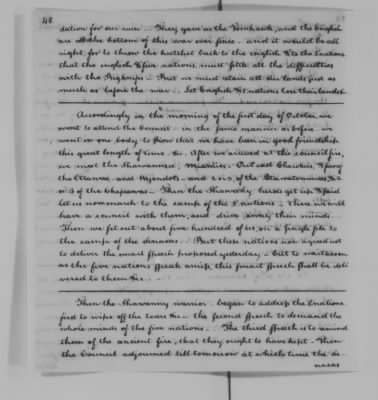 48
dation for our ruin. They gave us the Tomhawk, and the English
are at the bottom of this war ever since. and it would be all
right, for to throw the hatchet back to the english & the 5 nations
that the english & five nations must settle all the difficulties
with the Bigknifes. But we must retain all our lands just as
much as before the war. Let English & 5 nations lose their lands &c.
Accordingly in the morning of the first day of October, we
went to attend the Council in the same manner as before we
went in one body to show that we have been in good friendship
this great length of time &c. After we arrived at the council fire,
we meet the Shawannese, Miamies, Cut east Cherukis, & few
the Ottawas and Wyondots and 2 or 3 of the Putawatommes, &
or 3 of the Chepawas. Then the Shawany heros get up & said
let us now march to the camp of the 5 nations there we will
have a council with them, and drive away their minds.
Then we set out about five hundred of us, in a single file to
the camp of the senacas. But these nations now agreed not
to deliver the smart speech proposed yesterday but to wait as soon
as the five nations speak amiss, this smart speech shall be deli
vered to them &c.
Then the Shawanny warrior began to address the 5 nations
first to wipe off the tears &c. the second speech to demand the
whole minds of the five nations. The third speech is to remind
them of the ancient fire, that they ought to have kept. Then
the Council adjourned till tomorrow at which time the de-